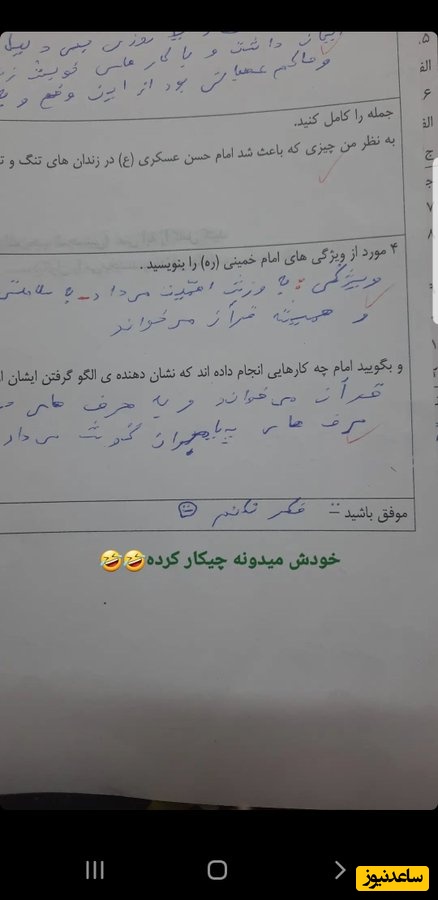 ایمان داشت و با کار های خویش
و حاکم عصبانی بود از این وضع و
۵.
الف
۶
الف
ج
۷
۸
جمله را کامل کنید.
به نظر من چیزی که باعث شد امام حسن عسکری (ع) در زندان های تنگ و
۴ مورد از ویژگی های امام خمینی (ره) را بنویسید .
ویژگی: به ورزش اهمیت می داد - به سلامتی
و همیشه قرآن می خواند
و بگویید امام چه کارهایی انجام داده اند که نشان دهنده ی الگو گرفتن ایشان از
قرآن می خواند و به حرف های
حرف های پیامبران گوش می داد
موفق باشید فکر نکنم
خودش میدونه چیکار کرده🤣🤣
ساعدنیوز